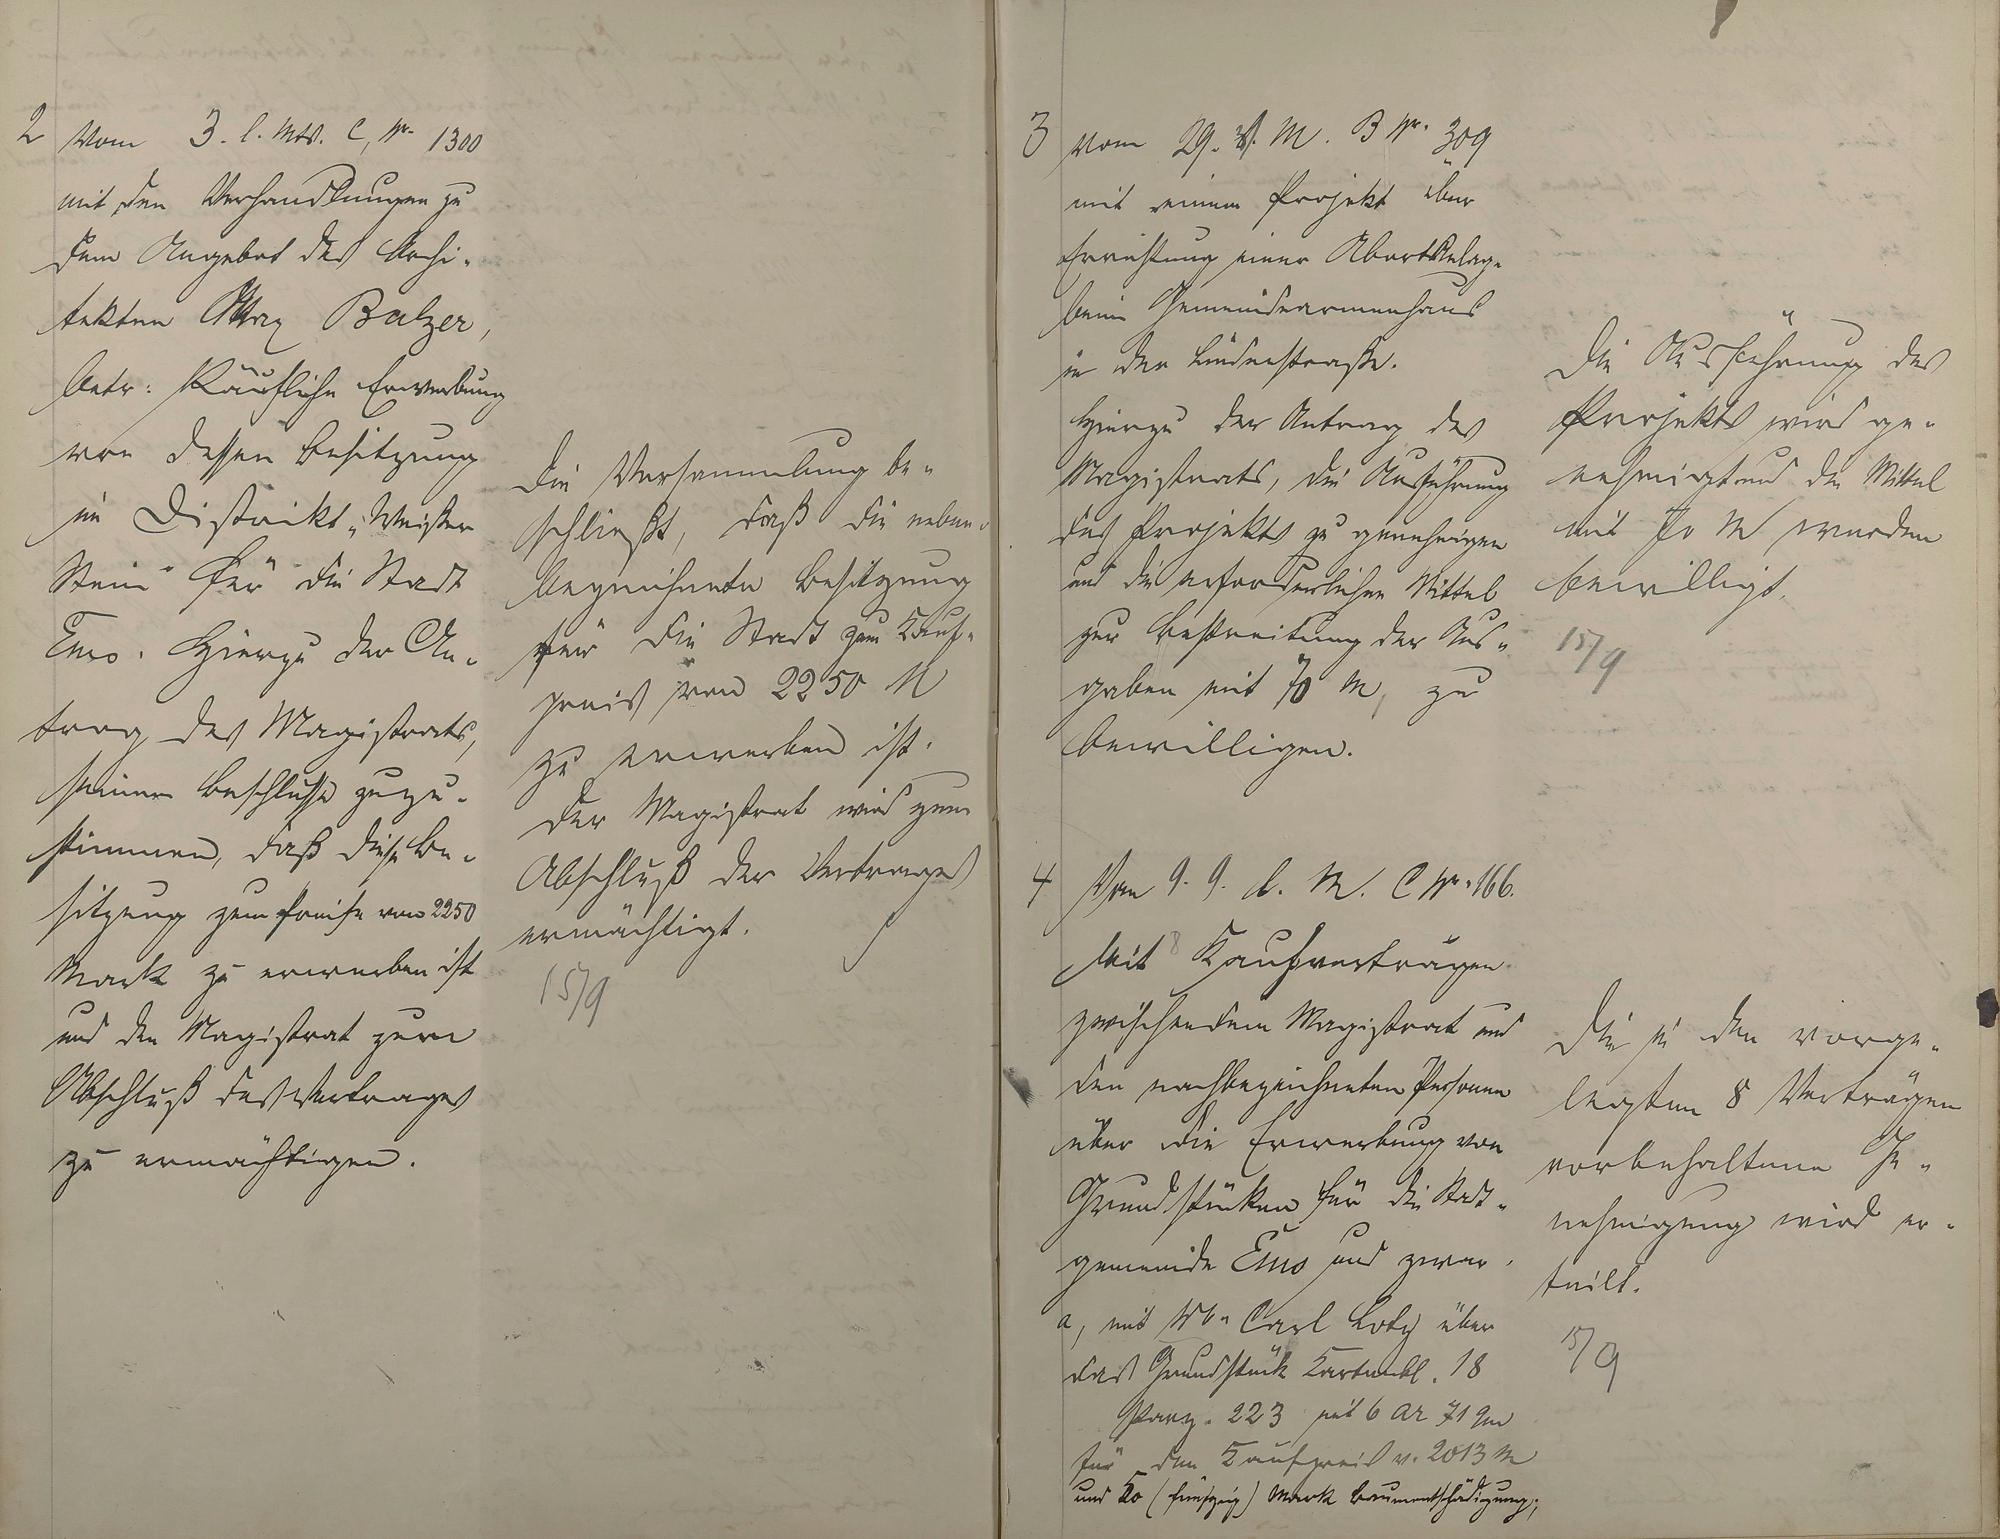 2 Vom 3. l. Mts. C, Nr. 1300
mit den Verhandlungen zu
dem Angebot des Archi-
tekten Max Balzer,
betr: Käufliche Erwerbung
von dessen Besitzung
im Distrikt "Weißer
Stein" für die Stadt
Ems. Hierzu der An-
trag des Magistrats,
seinem Beschlusse zuzu-
stimmen, daß diese Be-
sitzung zum Preise von 2250
Mark zu erwerben ist
und den Magistrat zum
Abschluß des Vertrages
zu ermächtigen.
Die Versammlung be-
schließt, daß die neben-
bezeichnete Besitzung
für die Stadt zum Kauf-
preis von 2250 M
zu erwerben ist.
Der Magistrat wird zum
Abschluß der Vertrages
ermächtigt.
15/9
3 Vom 29. v. M. B Nr. 309
mit einem Projekt über
Errichtung einer Abortanlage
beim Gemeindearmenhaus
in der Lindenstraße.
Hierzu der Antrag des
Magistrats, die Ausführung
des Projekts zu genehmigen
und die erforderlichen Mittel
zur Bestreitung der Aus-
gaben mit 70 M, zu
bewilligen.
Die Ausführung des
Projekts wird ge-
nehmigt und die Mittel
mit 70 M werden
bewilligt.
15/9
4 Vom 9. 9. l. M. C Nr. 166.
Mit 8 Kaufverträgen
zwischen dem Magistrat und
den nachbezeichneten Personen
über die Erwerbung von
Grundstücken für die Stadt-
gemeinde Ems und zwar.
a, mit Ww. Carl Lotz über
das Grundstück Kartenbl. 18
Parz. 223 mit 6 ar 71 qm
für den Kaufpreis v. 2013 M
und 50 (fünfzig) Mark Baumentschädigung;
Die zu den vorge-
legten 8 Verträgen
vorbehaltene Ge-
nehmigung wird er-
teilt.
15/9